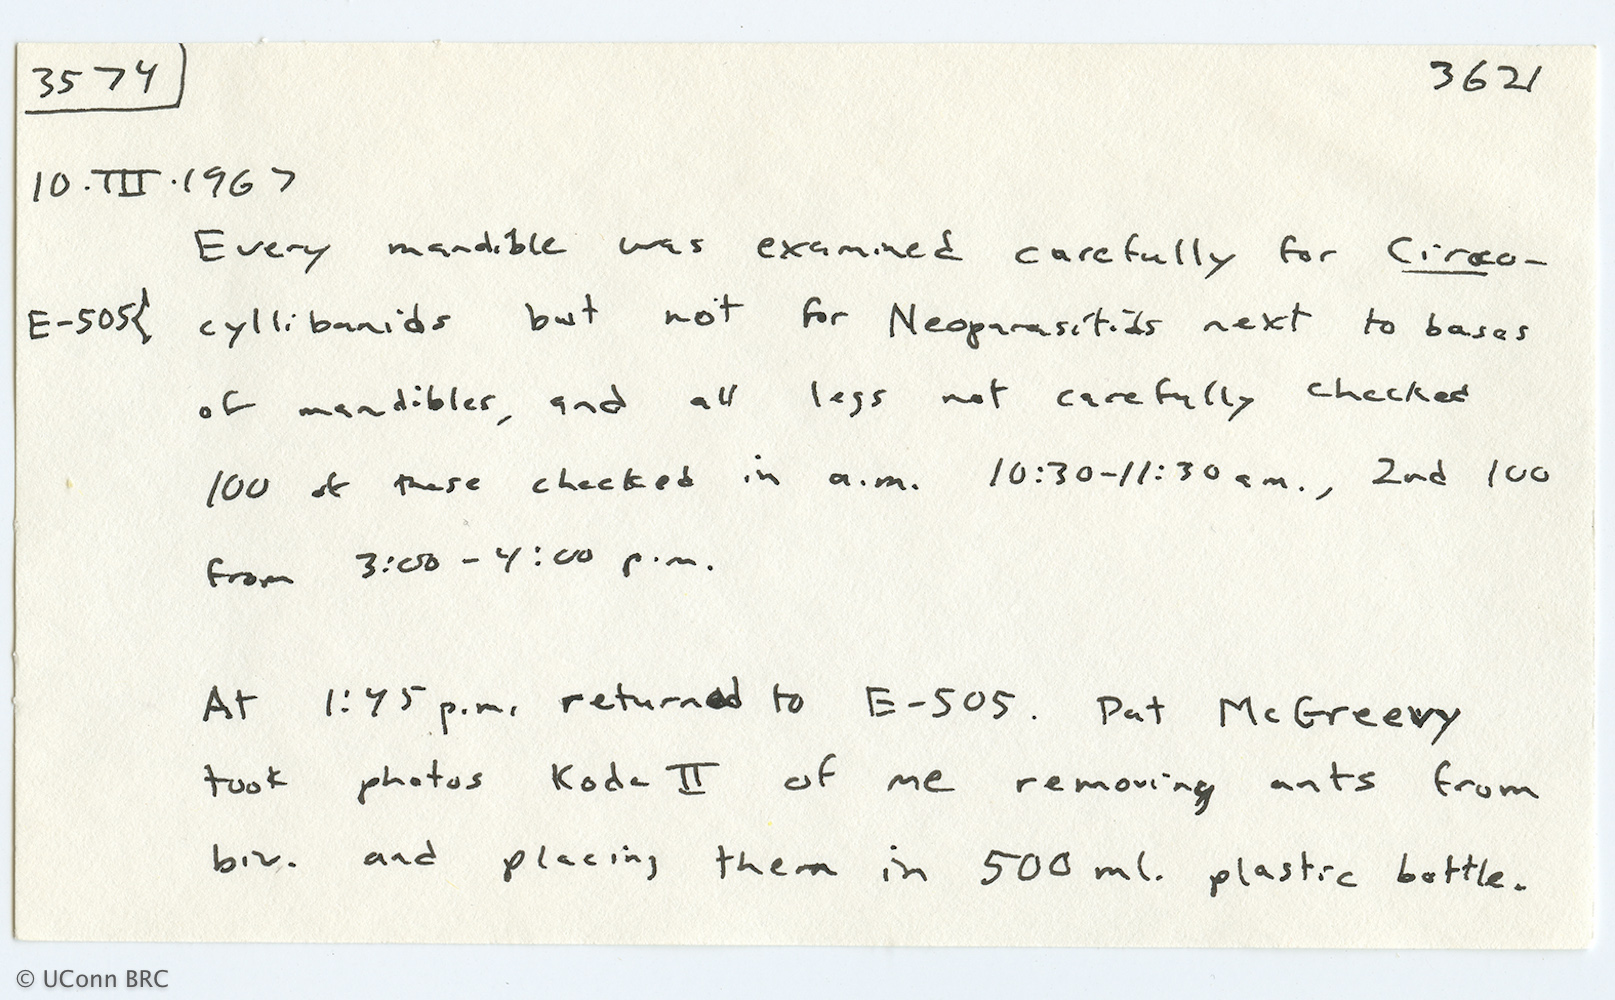 3574 3621
10.III.1967
Every mandible was examined carefully for Circo-
E-505{ cyllibanids but not for Neoparasitids next to bases
of mandibles, and all legs not carefully checked
100 of these checked in a.m. 10:30-11:30 a.m., 2nd 100
from 3:00-4:00 p.m.
At 1:45 p.m. returned to E-505. Pat McGreevy
took photos Koda II of me removing ants from
biv. and placing them in 500 ml. plastic bottle.
© UConn BRC